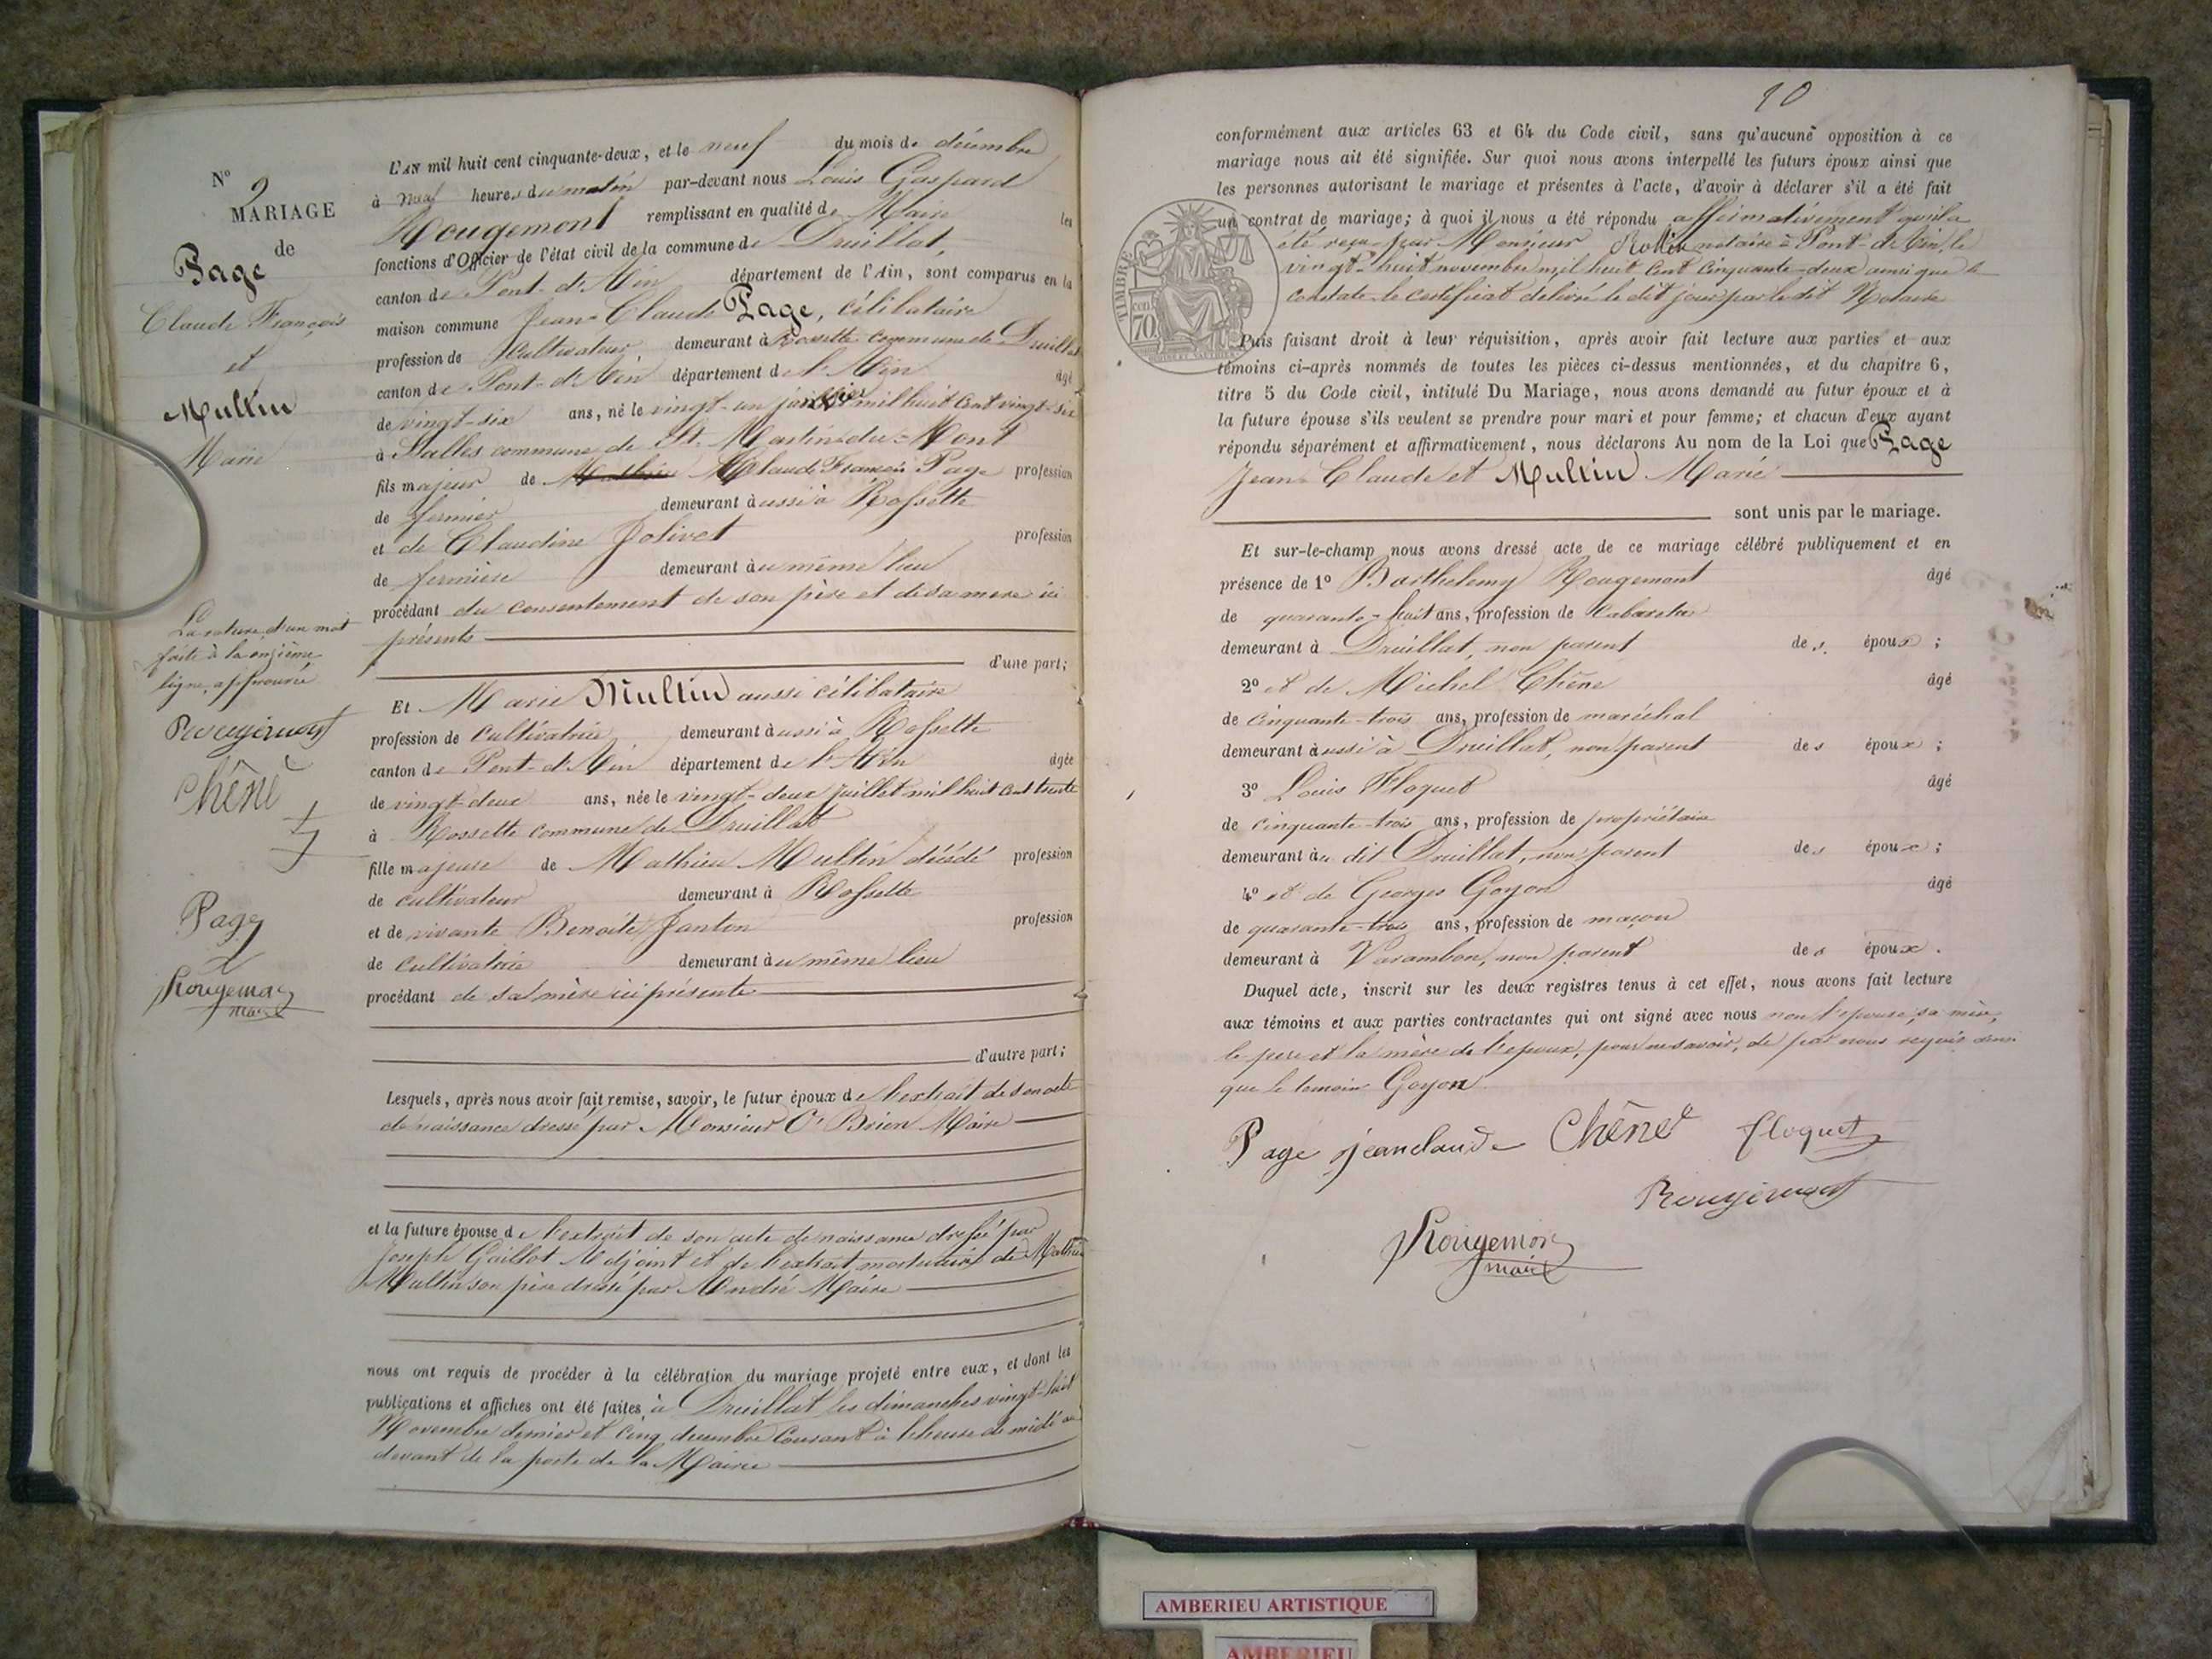 Nº 9
MARIAGE
de
Page
Claude François
et
Mullin
Marie
La rature d'un mot
faite à la onzième
ligne, approuvée
Rougemont
Chêne
Page
Rougemont
maire
L'AN mil huit cent cinquante-deux, et le neuf du mois de décembre
à neuf heures du matin par-devant nous Louis Gaspard
Rougemont remplissant en qualité de Maire les
fonctions d'Officier de l'état civil de la commune de Druillat,
canton de Pont-d'Ain département de l'Ain, sont comparus en la
maison commune Jean-Claude Page, célibataire
profession de Cultivateur, demeurant à Rossette commune de Druillat
canton de Pont-d'Ain département de l'Ain âgé
de vingt-six ans, né le vingt-un janvier mil huit cent vingt-six
à Salles commune de St. Martin-du-Mont
fils majeur de Claude François Page profession
de fermier demeurant aussi à Rossette
et de Claudine Jolivet profession
de fermière demeurant au même lieu
procédant du consentement de son père et de sa mère ici
présents
d'une part;
Et Marie Mullin aussi célibataire
profession de Cultivatrice demeurant aussi à Rossette
canton de Pont-d'Ain département de l'Ain âgée
de vingt-deux ans, née le vingt-deux juillet mil huit cent trente
à Rossette commune de Druillat
fille majeure de Mathieu Mullin décédé profession
de cultivateur demeurant à Rossette
et de vivante Benoîte Janton profession
de cultivatrice demeurant au même lieu
procédant de sa mère ici présente
d'autre part;
Lesquels, après nous avoir fait remise, savoir, le futur époux de l'extrait de son acte
de naissance dressé par Monsieur O'Brien Maire
et la future épouse de l'extrait de son acte de naissance dressé par
Joseph Gaillot Adjoint et de l'extrait mortuaire de Mathieu
Mullin son père dressé par André Maire
nous ont requis de procéder à la célébration du mariage projeté entre eux, et dont les
publications et affiches ont été faites à Druillat les dimanches vingt-huit
Novembre dernier et cinq décembre courant à l'heure de midi au
devant de la porte de la Mairie
10
conformément aux articles 63 et 64 du Code civil, sans qu'aucune opposition à ce
mariage nous ait été signifiée. Sur quoi nous avons interpellé les futurs époux ainsi que
les personnes autorisant le mariage et présentes à l'acte, d'avoir à déclarer s'il a été fait
un contrat de mariage; à quoi il nous a été répondu affirmativement qu'il a
été reçu par Monsieur Rollin notaire à Pont-de-d'Ain, le
vingt-huit novembre mil huit cent cinquante-deux ainsi que le
constate le certificat délivré le dit jour par le dit Notaire
TIMBRE
70
Puis faisant droit à leur réquisition, après avoir fait lecture aux parties et aux
témoins ci-après nommés de toutes les pièces ci-dessus mentionnées, et du chapitre 6,
titre 5 du Code civil, intitulé Du Mariage, nous avons demandé au futur époux et à
la future épouse s'ils veulent se prendre pour mari et pour femme; et chacun d'eux ayant
répondu séparément et affirmativement, nous déclarons Au nom de la Loi que Page
Jean-Claude et Mullin Marie
sont unis par le mariage.
Et sur-le-champ nous avons dressé acte de ce mariage célébré publiquement et en
présence de 1º Barthelemy Rougemont âgé
de quarante-huit ans, profession de Cabaretier
demeurant à Druillat, non parent des époux;
2º et de Michel Chêne âgé
de cinquante-trois ans, profession de maréchal
demeurant aussi à Druillat, non parent des époux;
3º Louis Floquet âgé
de cinquante-trois ans, profession de propriétaire
demeurant au dit Druillat, non parent des époux;
4º et de Georges Goyon âgé
de quarante-trois ans, profession de maçon
demeurant à Varambon, non parent des époux.
Duquel acte, inscrit sur les deux registres tenus à cet effet, nous avons fait lecture
aux témoins et aux parties contractantes qui ont signé avec nous non l'épouse, sa mère,
le père et la mère de l'époux, pour ne savoir, de par nous requis ainsi
que le témoin Goyon
Page jeanclaude Chêne floquet
Rougemont
Rougemont
maire
AMBERIEU ARTISTIQUE
AMBERIEU